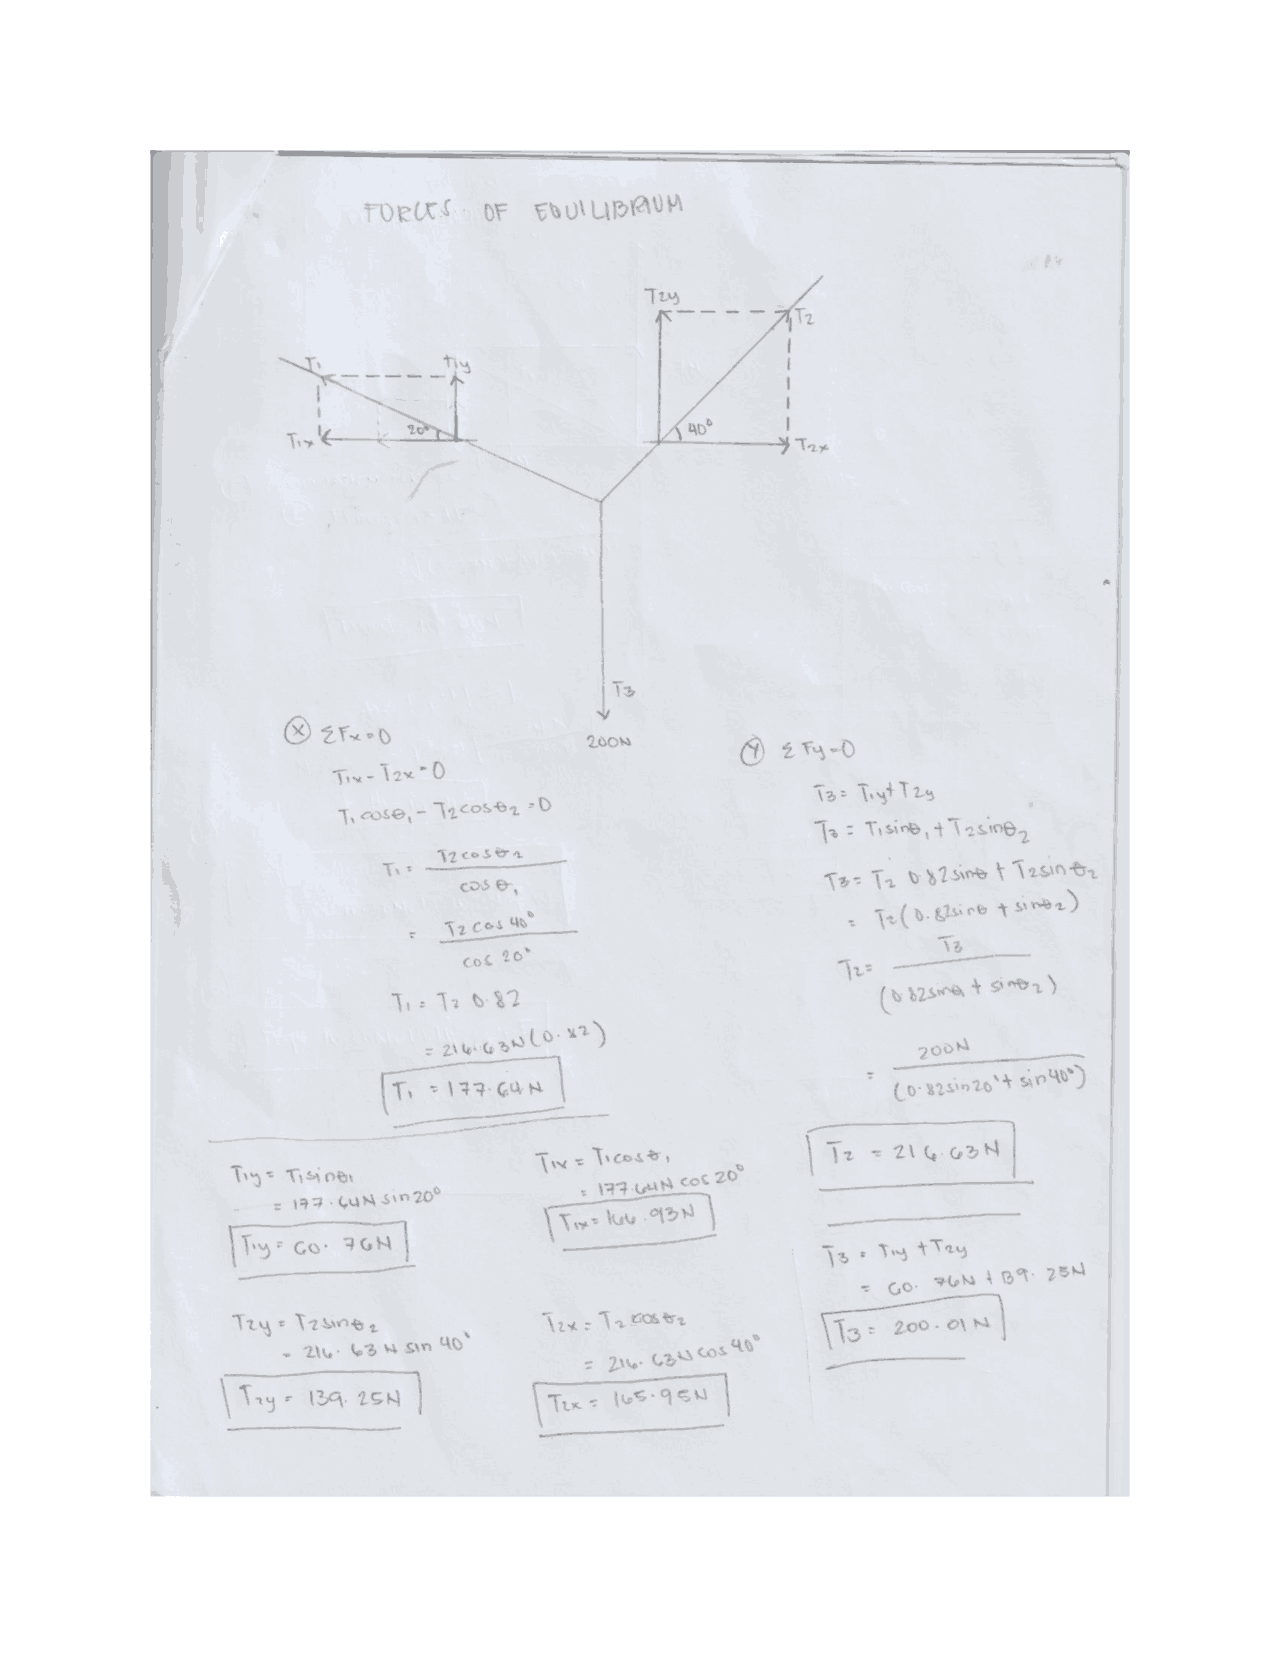 FORCES OF EQUILIBRIUM
T2y
T2
T1
T1y
20°
40°
T1x
T2x
T3
200N
Ⓧ ΣFx=0
T1x - T2x = 0
T1cosθ1 - T2cosθ2 = 0
T1 = T2cosθ2 / cosθ1
= T2 cos 40° / cos 20°
T1 = T2 0.82
= 216.63N (0.82)
T1 = 177.64N
Ⓨ ΣFy=0
T3 = T1y + T2y
T3 = T1sinθ1 + T2sinθ2
T3 = T2 0.82sinθ + T2sinθ2
= T2(0.82sinθ + sinθ2)
T2 = T3 / (0.82sinθ1 + sinθ2)
= 200N / (0.82sin20° + sin40°)
T2 = 216.63N
T1y = T1sinθ1
= 177.64N sin20°
T1y = 60.76N
T1x = T1cosθ1
= 177.64N cos20°
T1x = 166.93N
T3 = T1y + T2y
= 60.76N + 139.25N
T3 = 200.01N
T2y = T2sinθ2
= 216.63N sin 40°
T2y = 139.25N
T2x = T2cosθ2
= 216.63N cos40°
T2x = 165.95N